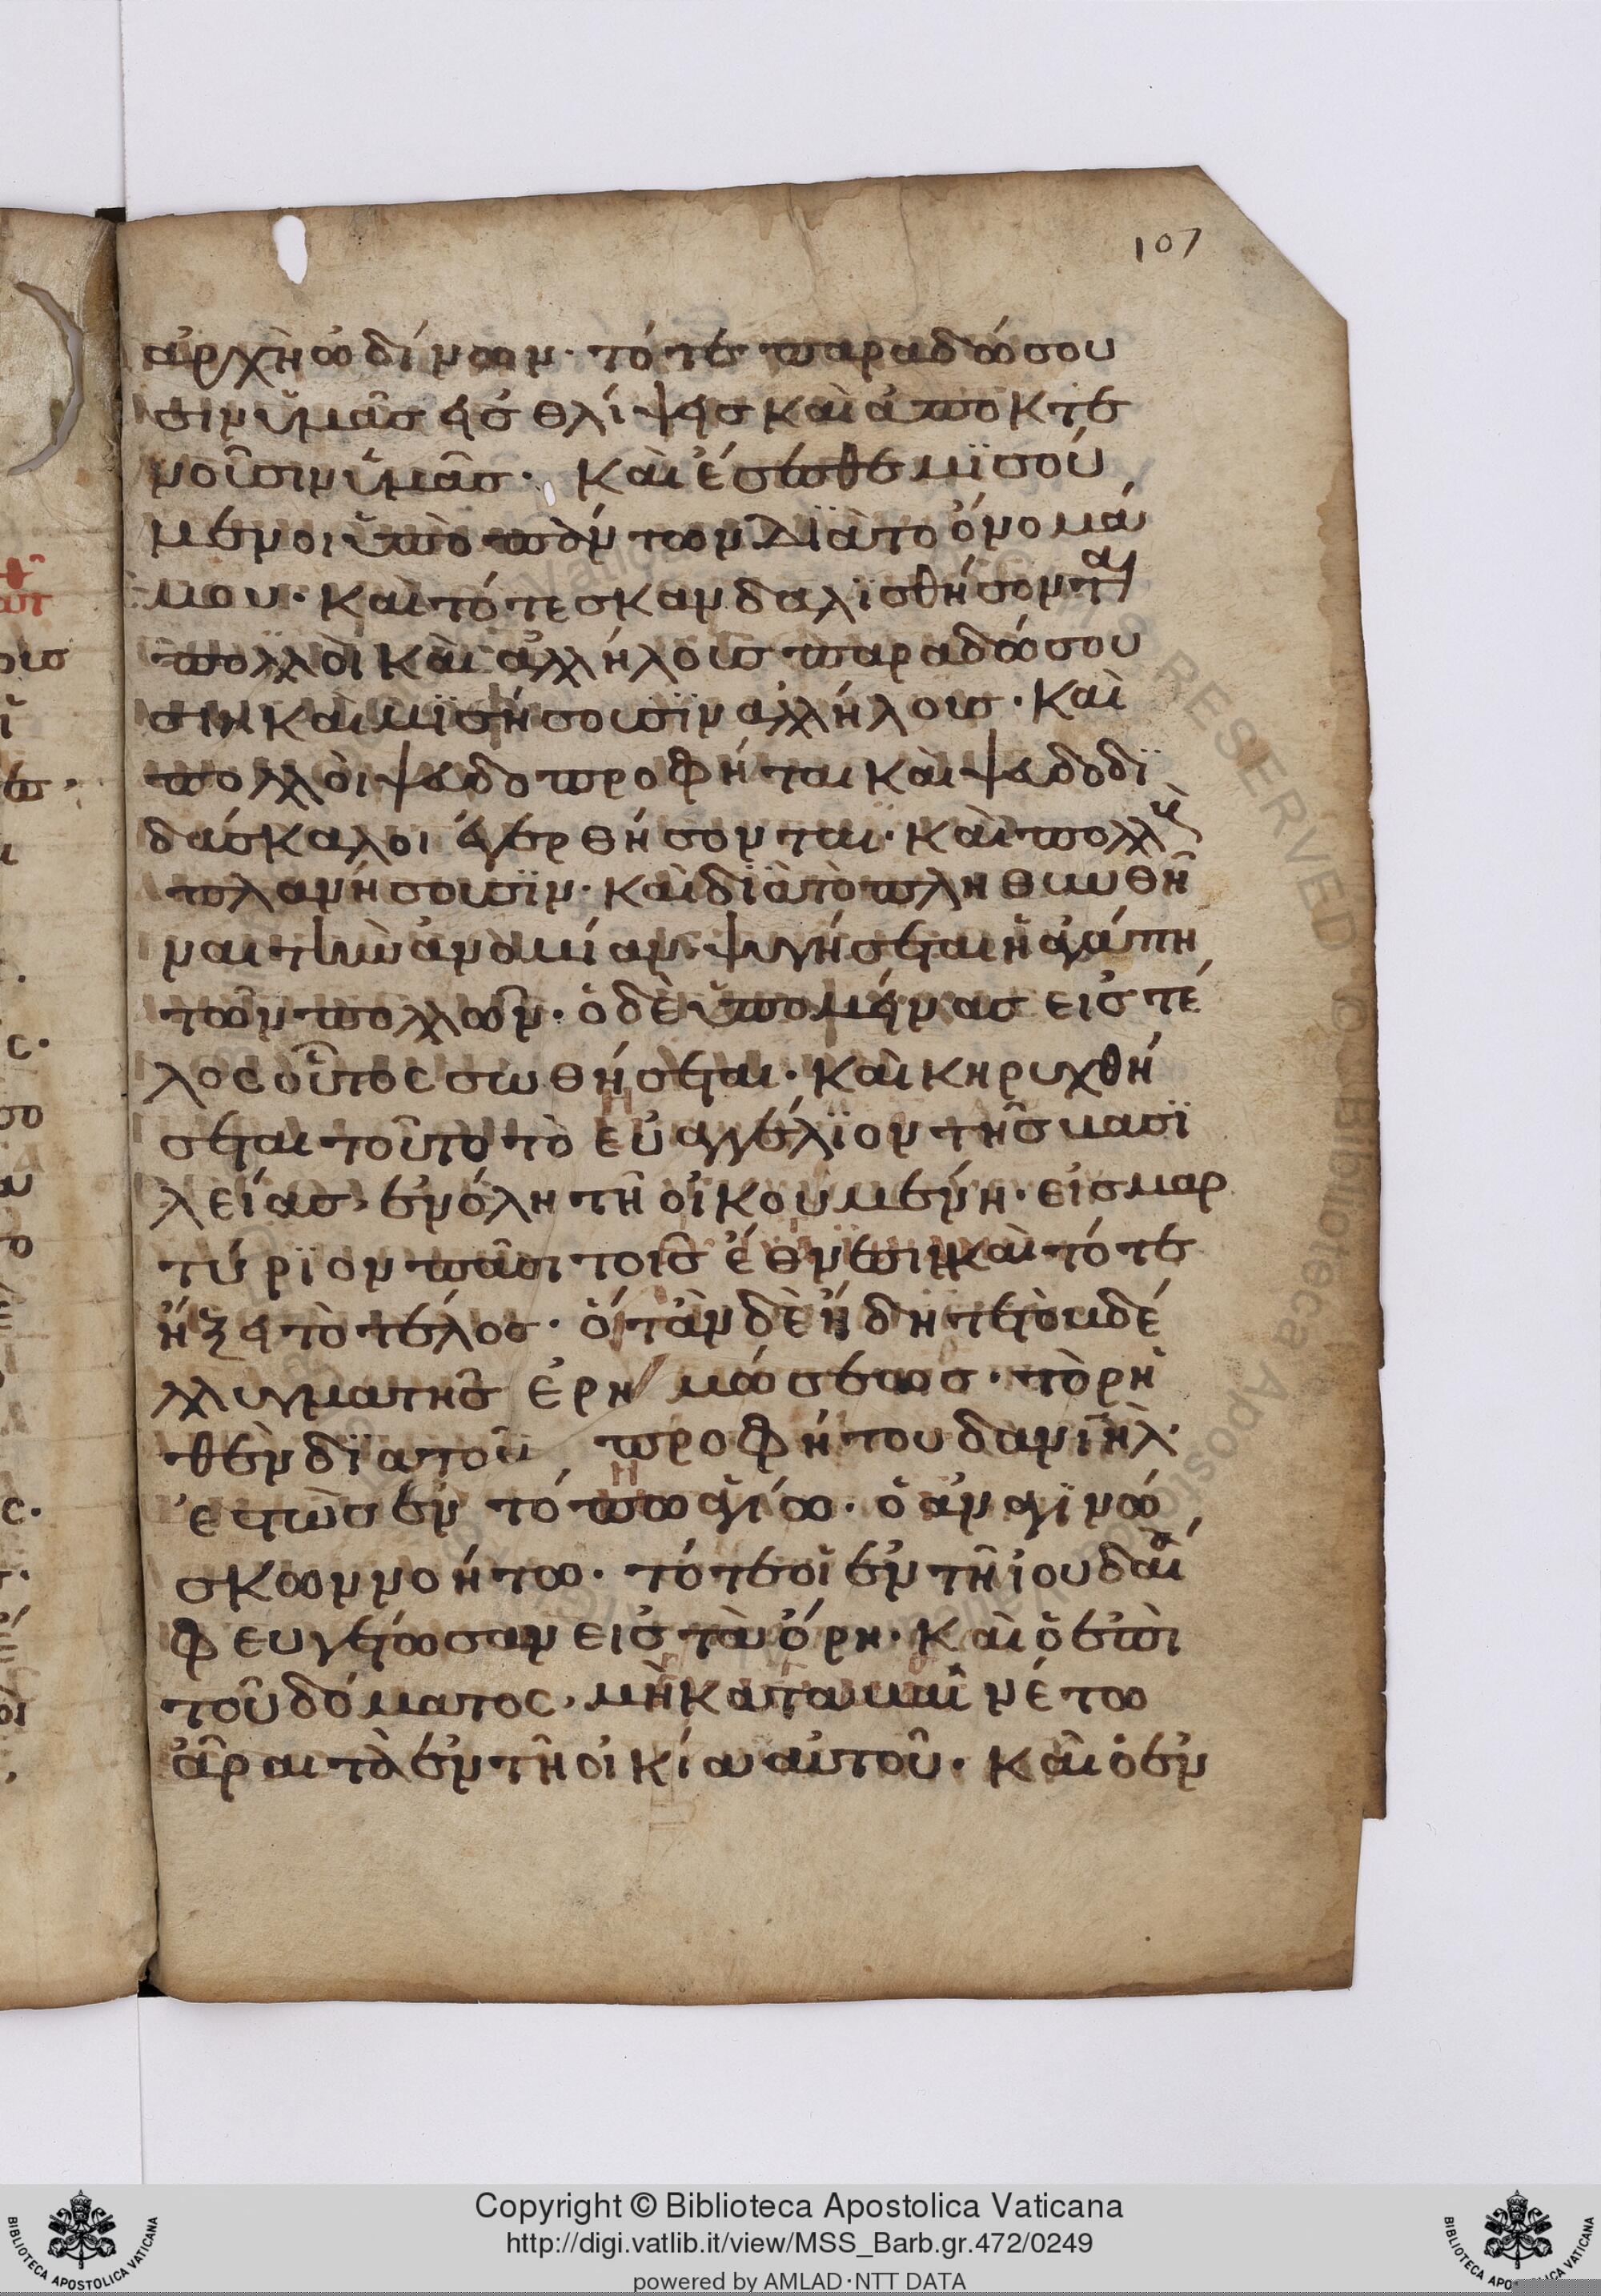 107
ἀρχὴ ὠδίνων· τότε παραδώσου
σιν ὑμᾶς εἰς θλίψεις καὶ ἀποκτε
νοῦσιν ὑμᾶς· καὶ ἔσεσθε μισού
μενοι ὑπὸ πάντων διὰ το ὄνομά
μου· καὶ τότε σκανδαλισθήσονται
πολλοὶ καὶ ἀλλήλους παραδώσου
σιν καὶ μισήσουσϊν ἀλλήλους· καὶ
πολλοὶ ψευδοπροφήται καὶ ψευδοδϊ
δάσκαλοι ἐγερθήσονται· καὶ πολλοὺς
πλανήσουσϊν· καὶ δϊὰ τὸ πληθυνθῆ
ναι τὴν ἀνομίαν ψυγήσεται ἡ ἀγάπη
τῶν πολλῶν· ὁ δὲ ὑπομείνας εἰς τέ
λος οὗτος σωθήσεται· καὶ κηρυχθή
σεται τοῦτο τὸ εὐαγγέλϊον τῆς βασϊ
λείας, ἐν όλη τῆ οἰκουμένη· εἰς μαρ
τύρϊον πᾶσι τοῖς ἔθνεσιν καὶ τότε
ἥξει τὸ τέλος· ὅταν δὲ ἤδητε τὸ βδέ
λλυγμα τῆς ἐρημώσεως· τὸ ρη
θὲν δϊα τοῦ προφήτου δανιὴλ·
ἑστὼς ἐν τόπω ἁγίω· ὁ ἀναγϊνώ
σκων νοήτω· τότε οἱ ἐν τῆ ἰουδαία
φευγέτωσαν εἰς τὰ ὄρη· καὶ ὁ ἐπὶ
τοῦ δόματος, μὴ καταβαινέτω
ἆραι τὰ ἐν τῆ οἰκία αὐτοῦ· καὶ ὁ ἐν
Copyright © Biblioteca Apostolica Vaticana
http://digi.vatlib.it/view/MSS_Barb.gr.472/0249
powered by AMLAD·NTT DATA
BIBLIOTECA APOSTOLICA VATICANA